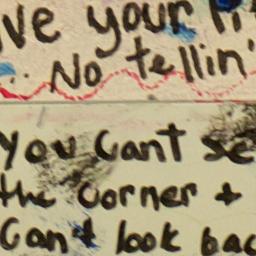 ve your li
No tellin'
you Cant se
the Corner +
Cant look bac